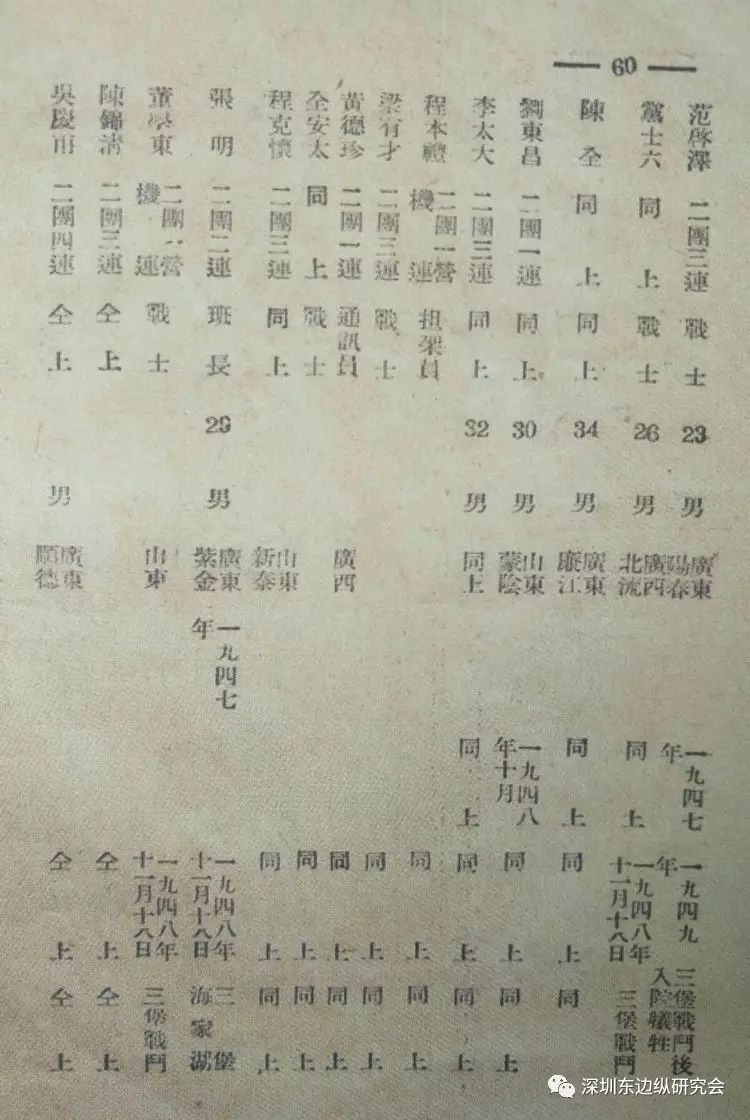 — 60 —
范啓澤 二團三連 戰士 23 男 廣東陽春 一九四七年 一九四九年 三堡戰鬥後入院犧牲
黨士六 同上 戰士 26 男 廣西北流 同上 一九四八年十一月十八日 三堡戰鬥
陳全 同上 同上 34 男 廣東廉江 同上 同上 同上
劉東昌 二團一連 同上 30 男 山東蒙陰 一九四八年十月 同上 同上
李太大 二團三連 同上 32 男 同上 同上 同上 同上
程本禮 二團一營機連 担架員 同上 同上
梁有才 二團三連 戰士 同上 同上
黃德珍 二團一連 通訊員 廣西 同上 同上
全安太 同上 戰士 同上 同上
程克懷 二團三連 同上 山東新泰 同上 同上
張明 二團二連 班長 29 男 廣東紫金 一九四七年 一九四八年十一月十八日 三堡海家湖
董學東 二團一營機連 戰士 山東 一九四八年十一月十八日 三堡戰鬥
陳錦清 二團三連 仝上 仝上 仝上
吳慶甫 二團四連 仝上 男 廣東順德 仝上 仝上
深圳东边纵研究会